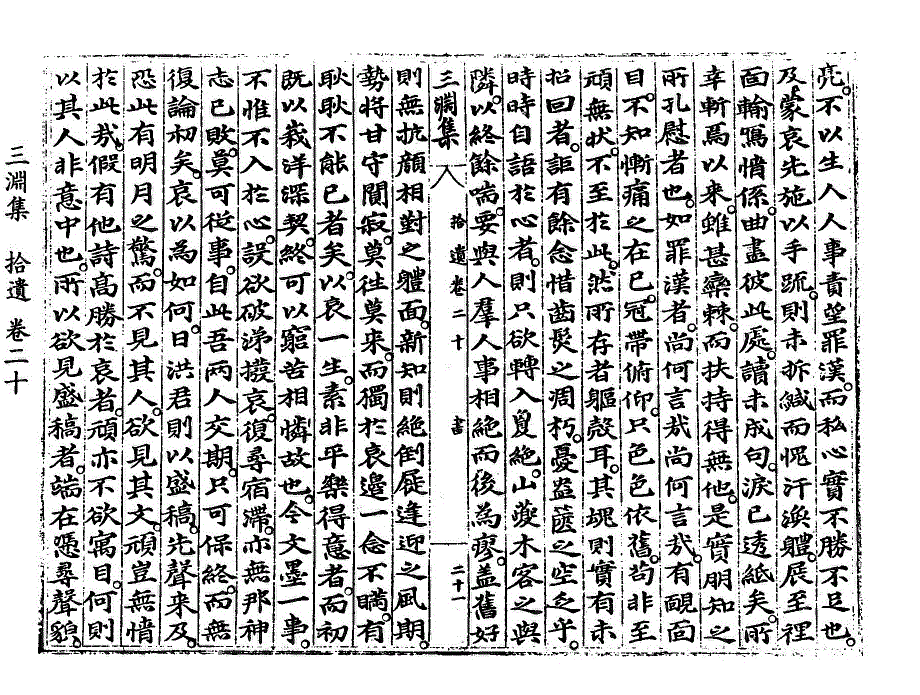 亮。不以生人人事責望罪漢。而私心實不勝不足也。
及蒙哀先施以手疏。則未拆緘而愧汗渙體。展至裡
面輸寫情係。曲盡彼此處。讀未成句。淚已透紙矣。所
幸斬焉以來。雖甚欒棘。而扶持得無他。是實朋知之
所孔慰者也。如罪漢者。尚何言哉尚何言哉。有靦面
目。不知慚痛之在已。冠帶俯仰。只色色依舊。苟非至
頑無狀。不至於此。然所存者軀殼耳。其塊則實有未
招回者。詎有餘念惜齒髮之凋朽。憂盎篋之空乏乎。
時時自語於心者。則只欲轉入夐絶。山夔木客之與
隣。以終餘喘。要與人羣人事相絶而後為瘳。盖舊好
三淵集 拾遺卷二十 書 二十一
則無抗顔相對之體面。新知則絶倒屣逢迎之風期。
勢將甘守闃寂。莫徃莫來。而獨於哀邊一念不瞞。有
耿耿不能已者矣。以哀一生素非乎樂得意者。而初
既以峩洋深契。終可以窮苦相憐故也。今文墨一事。
不惟不入於心。設欲破涕撥哀。復尋宿滯。亦無那神
志已敗。莫可從事。自此吾兩人交期。只可保終。而無
復論初矣。哀以為如何。日洪君則以盛稿。先聲來及。
恐此有明月之驚。而不見其人。欲見其文。頑豈無情
於此哉。假有他詩高勝於哀者。頑亦不欲寓目。何則
以其人非意中也。所以欲見盛稿者。端在慿尋聲貌。
三淵集 拾遺 卷二十